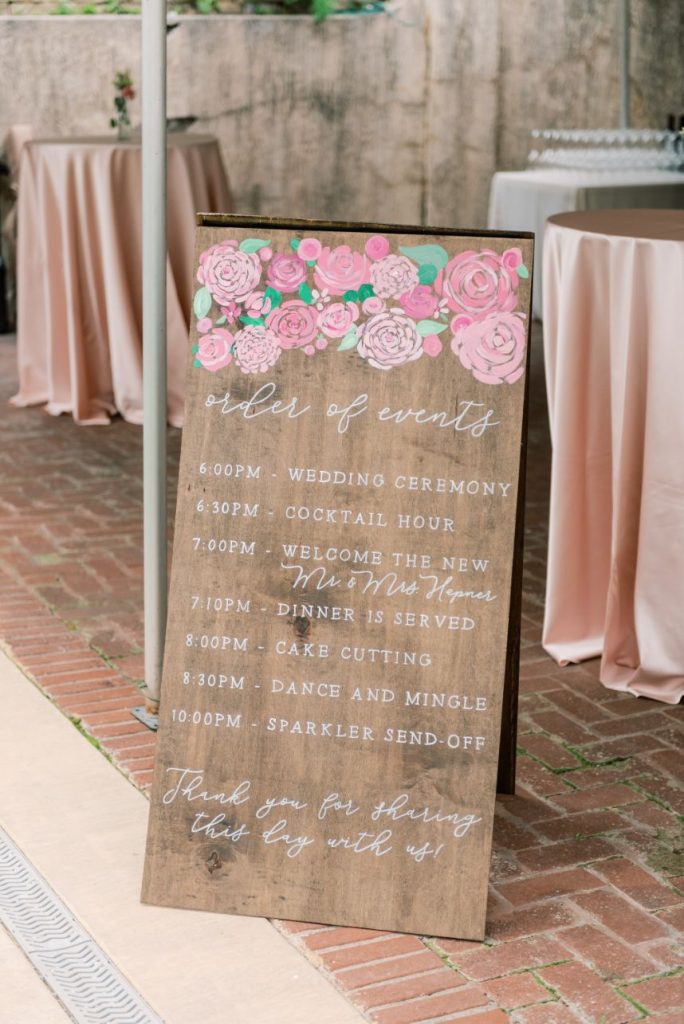 order of events
6:00PM - WEDDING CEREMONY
6:30PM - COCKTAIL HOUR
7:00PM - WELCOME THE NEW
Mr. & Mrs Hepner
7:10PM - DINNER IS SERVED
8:00PM - CAKE CUTTING
8:30PM - DANCE AND MINGLE
10:00PM - SPARKLER SEND-OFF
Thank you for sharing
this day with us!